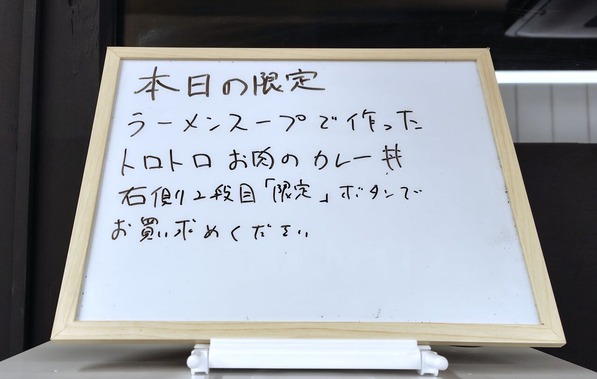 本日の限定
ラーメンスープで作った
トロトロ お肉の カレー丼
右側2段目「限定」ボタンで
お買い求めください